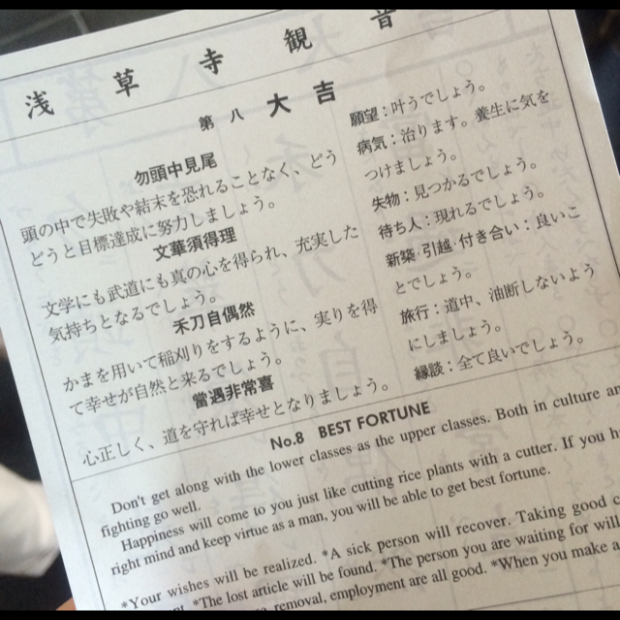 浅草寺観音
第八 大吉
勿頭中見尾
頭の中で失敗や結末を恐れることなく、どう
どうと目標達成に努力しましょう。
文華須得理
文学にも武道にも真の心を得られ、充実した
気持ちとなるでしょう。
禾刀自偶然
かまを用いて稲刈りをするように、実りを得
て幸せが自然と来るでしょう。
當遇非常喜
心正しく、道を守れば幸せとなりましょう。
願望：叶うでしょう。
病気：治ります。養生に気を
つけましょう。
失物：見つかるでしょう。
待ち人：現れるでしょう。
新築・引越・付き合い：良いこ
とでしょう。
旅行：道中、油断しないよう
にしましょう。
縁談：全て良いでしょう。
No.8 BEST FORTUNE
Don't get along with the lower classes as the upper classes. Both in culture an
fighting go well.
Happiness will come to you just like cutting rice plants with a cutter. If you h
right mind and keep virtue as a man, you will be able to get best fortune.
*Your wishes will be realized. *A sick person will recover. Taking good c
*The lost article will be found. *The person you are waiting for will
removal, employment are all good. *When you make a